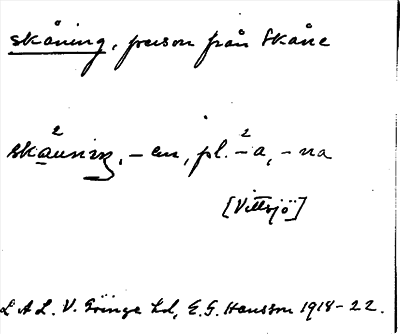 skåning, person från Skåne
skauning, – en, pl. – a, – na
[Vittsjö]
L A L. V. Göinge hd, E. G. Hansson 1918-22.